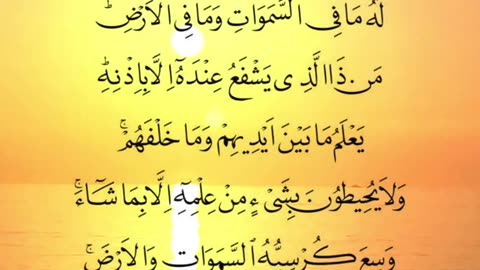 لَهُ مَا فِي السَّمَوَاتِ وَمَا فِي الْاَرْضِۜ
مَنْ ذَا الَّذِي يَشْفَعُ عِنْدَهُٓ اِلَّا بِاِذْنِهِۜ
يَعْلَمُ مَا بَيْنَ اَيْدِيهِمْ وَمَا خَلْفَهُمْۚ
وَلَا يُحِيطُونَ بِشَيْءٍ مِنْ عِلْمِهِٓ اِلَّا بِمَا شَٓاءَۚ
وَسِعَ كُرْسِيُّهُ السَّمَوَاتِ وَالْاَرْضَۚ